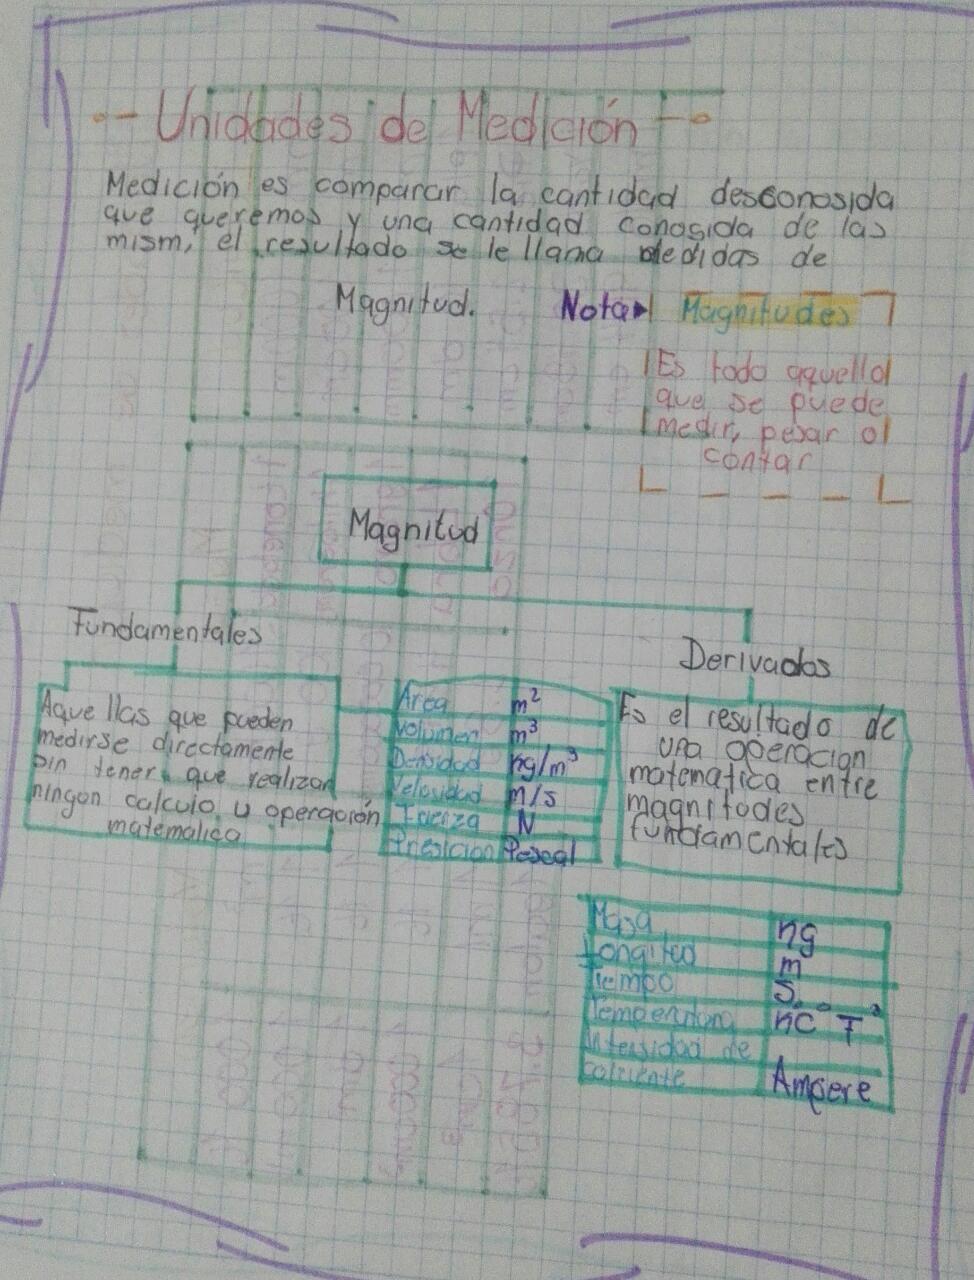 Unidades de Medición
Medición es comparar la cantidad desconosida
que queremos y una cantidad conosida de las
mism, el resultado se le llama Medidas de
Magnitud.
Nota
Magnitudes
Es todo aquello
que se puede
medir, pesar o
contar
Magnitud
Fundamentales
Aquellas que pueden
medirse directamente
sin tener que realizar
ningon calculo u operación
matematica
Area m²
Volumen m³
Densidad ng/m³
Velosidad m/s
Fuerza N
Presicion Pascal
Derivadas
Es el resultado de
una operacion
matematica entre
magnitudes
fundamentales
Masa ng
Longitud m
Tiempo S.
Temperatura nC° F°
intensidad de
corriente Ampere